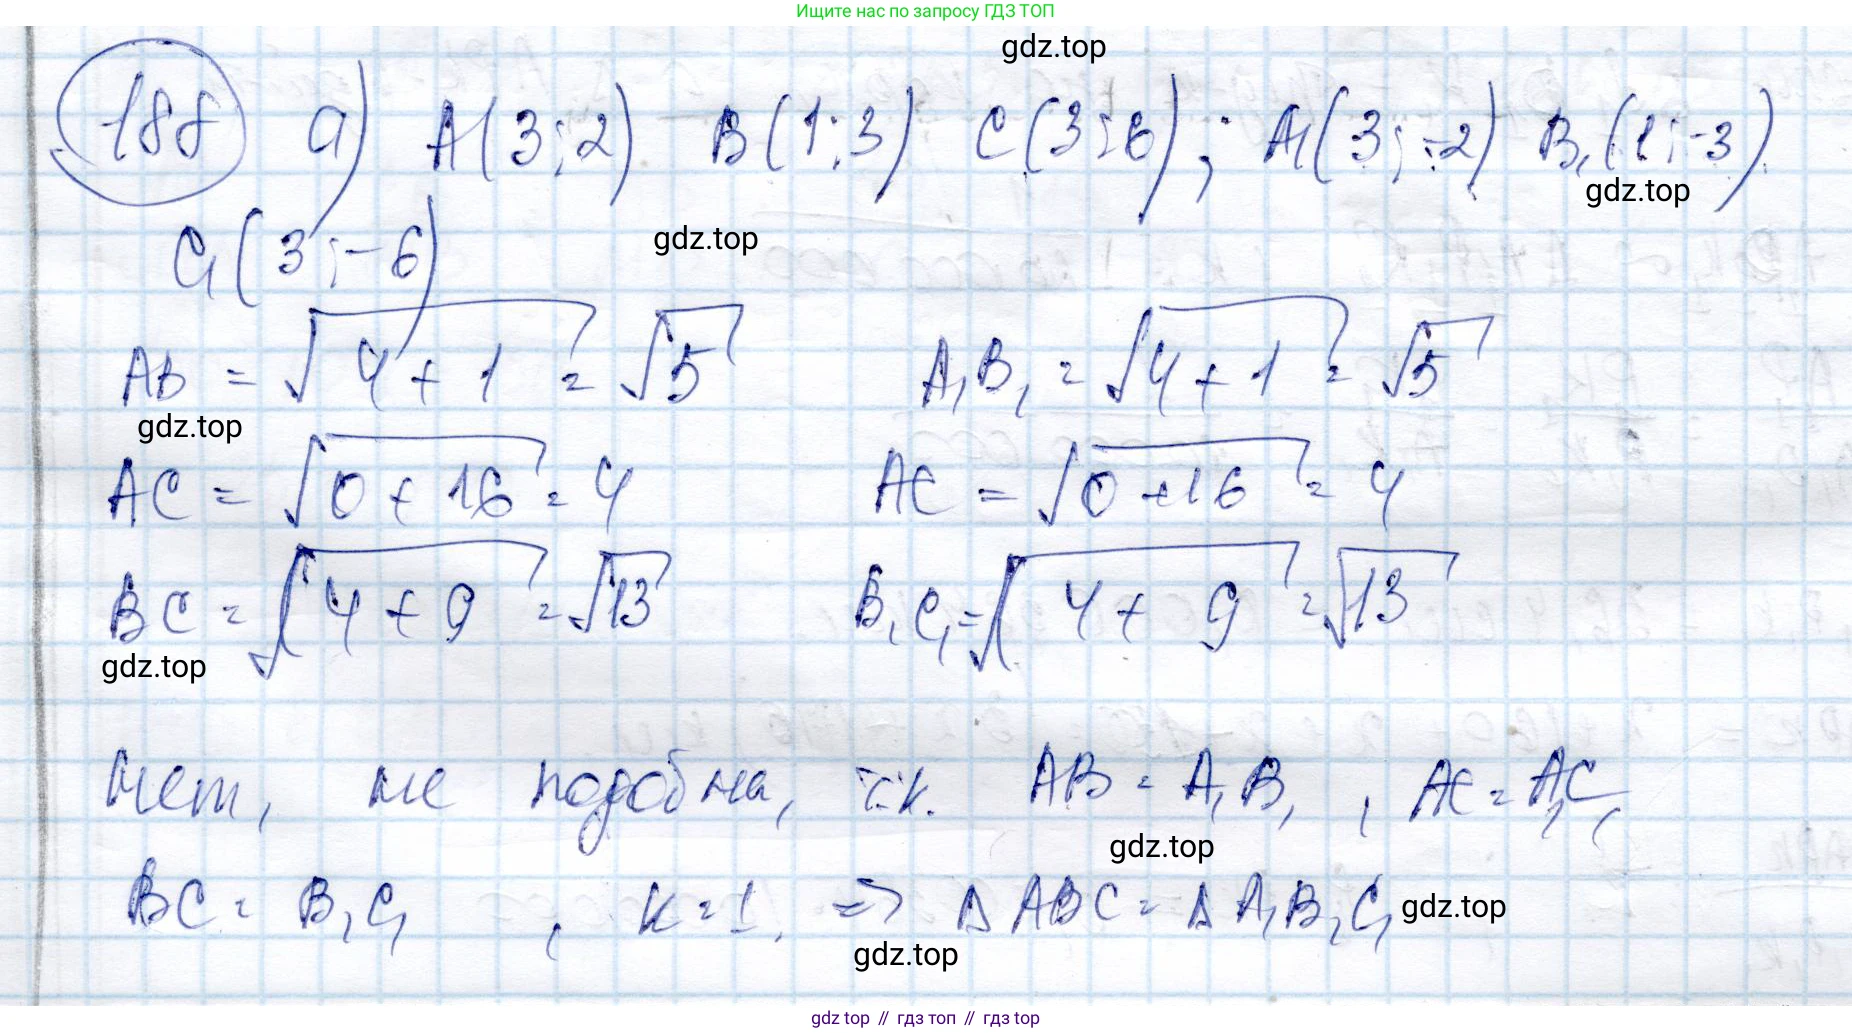 Ищите нас по запросу ГДЗ ТОП
gdz.top
188 а) A(3;2) B(1;3) C(3;6); A₁(3;-2) B₁(1;-3)
gdz.top
C₁(3;-6)
gdz.top
AB = √4+1 = √5 A₁B₁ = √4+1 = √5
gdz.top
AC = √0+16 = 4 AC = √0+16 = 4
BC = √4+9 = √13 B₁C₁ = √4+9 = √13
gdz.top
Нет, не подобна, т.к. AB = A₁B₁, AC = A₁C₁
gdz.top
BC = B₁C₁, K = 1, => Δ ABC = Δ A₁B₁C₁
gdz.top
gdz.top
gdz top // гдз топ // гдз top